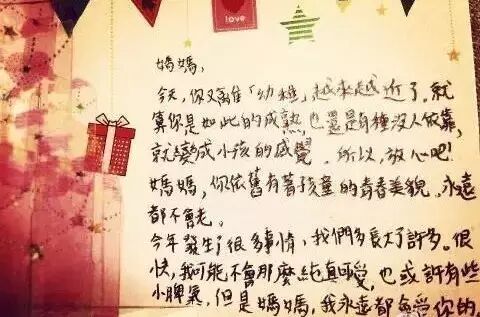 love
媽媽,
今天,你又離「幼稚」越來越近了,就
算你是如此的成熟,也還是有種沒人依靠,
就變成小孩的感覺。所以,放心吧!
媽媽,你依舊有著孩童的青春美貌,永遠
都不會老。
今年發生了很多事情,我們都長大了許多。很
快,我可能不會那麼純真可愛,也或許有些
小脾氣,但是媽媽,我永遠都會愛你的,